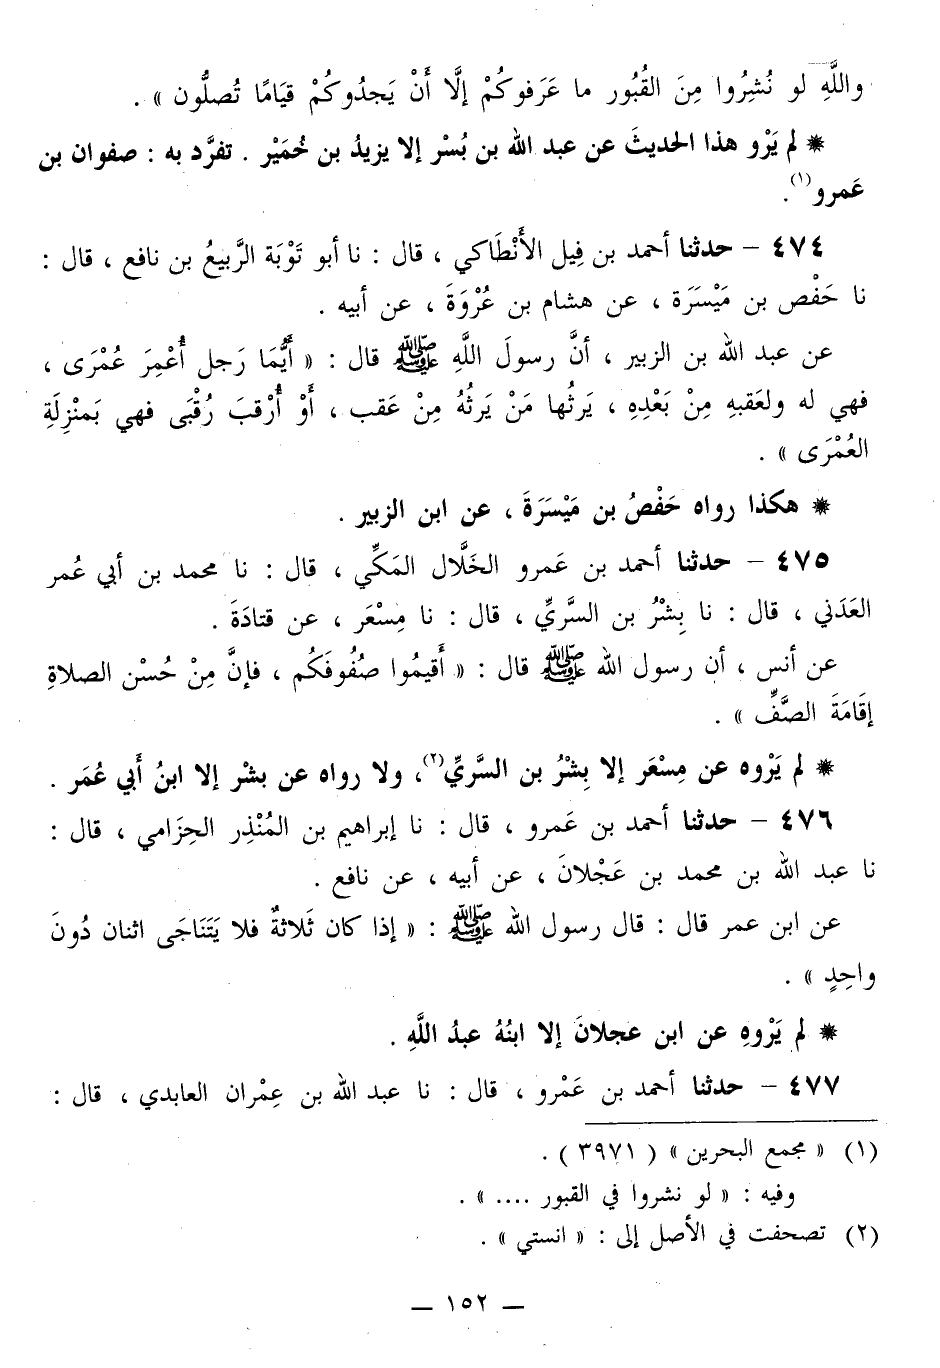 واللَّهِ لو نُشِرُوا مِنَ القُبُور ما عَرَفوكُمْ إلَّا أَنْ يَجدُوكُمْ قيَامًا تُصلُّون » .
* لم يَرْو هذا الحديثَ عن عبد الله بن بُسْر إلا يزيدُ بن خُمَيْر . تفرَّد به : صفوان بن
عَمرو(١).
٤٧٤ – حدثنا أحمد بن فِيل الأَنْطَاكي ، قال : نا أبو تَوْبَة الرَّبيعُ بن نافع ، قال :
نا حَفْص بن مَيْسَرَة ، عن هشام بن عُرْوَةَ ، عن أبيه .
عن عبد الله بن الزبير ، أنَّ رسولَ اللَّهِ ﷺ قال : « أَيُّمَا رَجل أُعْمِرَ عُمْرَى ،
فهي له ولعَقبهِ مِنْ بَعْدِهِ ، يَرثُها مَنْ يَرثُهُ مِنْ عَقب ، أَوْ أُرْقبَ رُقْبَى فهي بَمنْزِلَةِ
العُمْرَى » .
* هكذا رواه حَفْصُ بن مَيْسَرَةَ ، عن ابن الزبير .
٤٧٥ – حدثنا أحمد بن عَمرو الخَلَّال المَكِّي ، قال : نا محمد بن أبي عُمر
العَدَني ، قال : نا بِشْرُ بن السَّريِّ ، قال : نا مِسْعَر ، عن قتادَةَ .
عن أنس ، أن رسول الله ﷺ قال : « أَقيمُوا صُفُوفَكُم ، فإنَّ مِنْ حُسْن الصلاةِ
إقَامَةَ الصَّفِّ » .
* لم يَرْوه عن مِسْعَر إلا بِشْرُ بن السَّريِّ(٢)، ولا رواه عن بشْر إلا ابنُ أَبي عُمَر .
٤٧٦ – حدثنا أحمد بن عَمرو ، قال : نا إبراهيم بن المُنْذِر الحِزَامي ، قال :
نا عبد الله بن محمد بن عَجْلانَ ، عن أبيه ، عن نافع .
عن ابن عمر قال : قال رسول الله ﷺ : « إذا كان ثَلاثةٌ فلا يَتَنَاجَى اثنان دُونَ
واحِدٍ » .
* لم يَرْوهِ عن ابن عجلانَ إلا ابنُهُ عبدُ اللَّهِ .
٤٧٧ – حدثنا أحمد بن عَمْرو ، قال : نا عبد الله بن عِمْران العابدي ، قال :
(١) « مجمع البحرين » ( ٣٩٧١ ) .
وفيه : « لو نشروا في القبور .... » .
(٢) تصحفت في الأصل إلى : « انستي » .
— ١٥٢ —